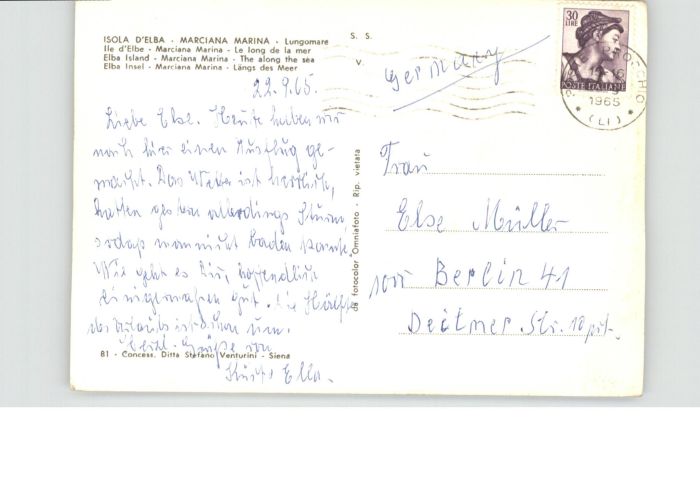 ISOLA D'ELBA - MARCIANA MARINA - Lungomare
Ile d'Elbe - Marciana Marina - Le long de la mer
Elba Island - Marciana Marina - The along the sea
Elba Insel - Marciana Marina - Längs des Meer
S. S.
V.
germany
30
LIRE
POSTE ITALIANE
1965
(LI)
22.9.65.
Liebe Else. Heute haben wir
noch hier einen Ausflug ge-
macht. Das Wetter ist herrlich,
hatten gestern allerdings Sturm,
sodaß man nicht baden konnte.
Wie geht es Dir, hoffentlich
einigermaßen gut. Die Hälfte
des Urlaubs ist schon um.
Herzl. Grüße von
Ella.
81 - Concess. Ditta Stefano Venturini - Siena
da fotocolor Omniafoto - Rip. vietata
Frau
Else Müller
Berlin 41
Str. 10